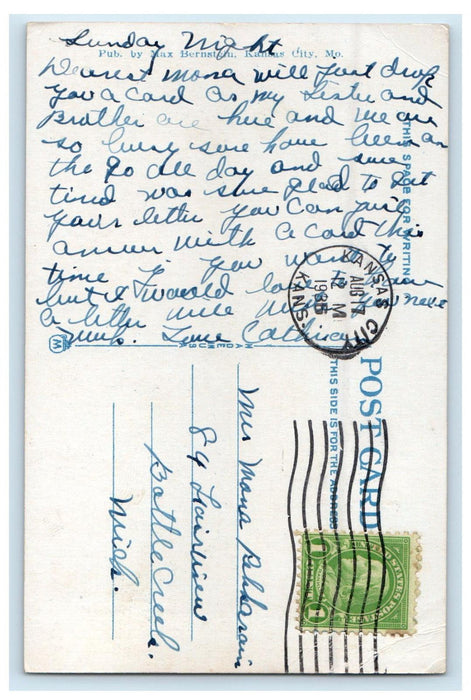 Sunday Night
Pub. by Max Bernstein, Kansas City, Mo.
Dearest Mona will just drop
you a card as my Sister and
Brother are here and we are
so busy sure have been on
the go all day and sure
tired was sure glad to get
your letter you can just
answer with a card this
time if you want to
but I would love to have
a letter
Love
MADE IN U.S.A.
THIS SPACE FOR WRITING
KANSAS CITY
AUG 17
12 M
1935
KANS.
POST CARD
THIS SIDE IS FOR THE ADDRESS
Mrs Mona
89 Fairview
Battle Creek
Mich.
UNITED STATES POSTAGE
1 1